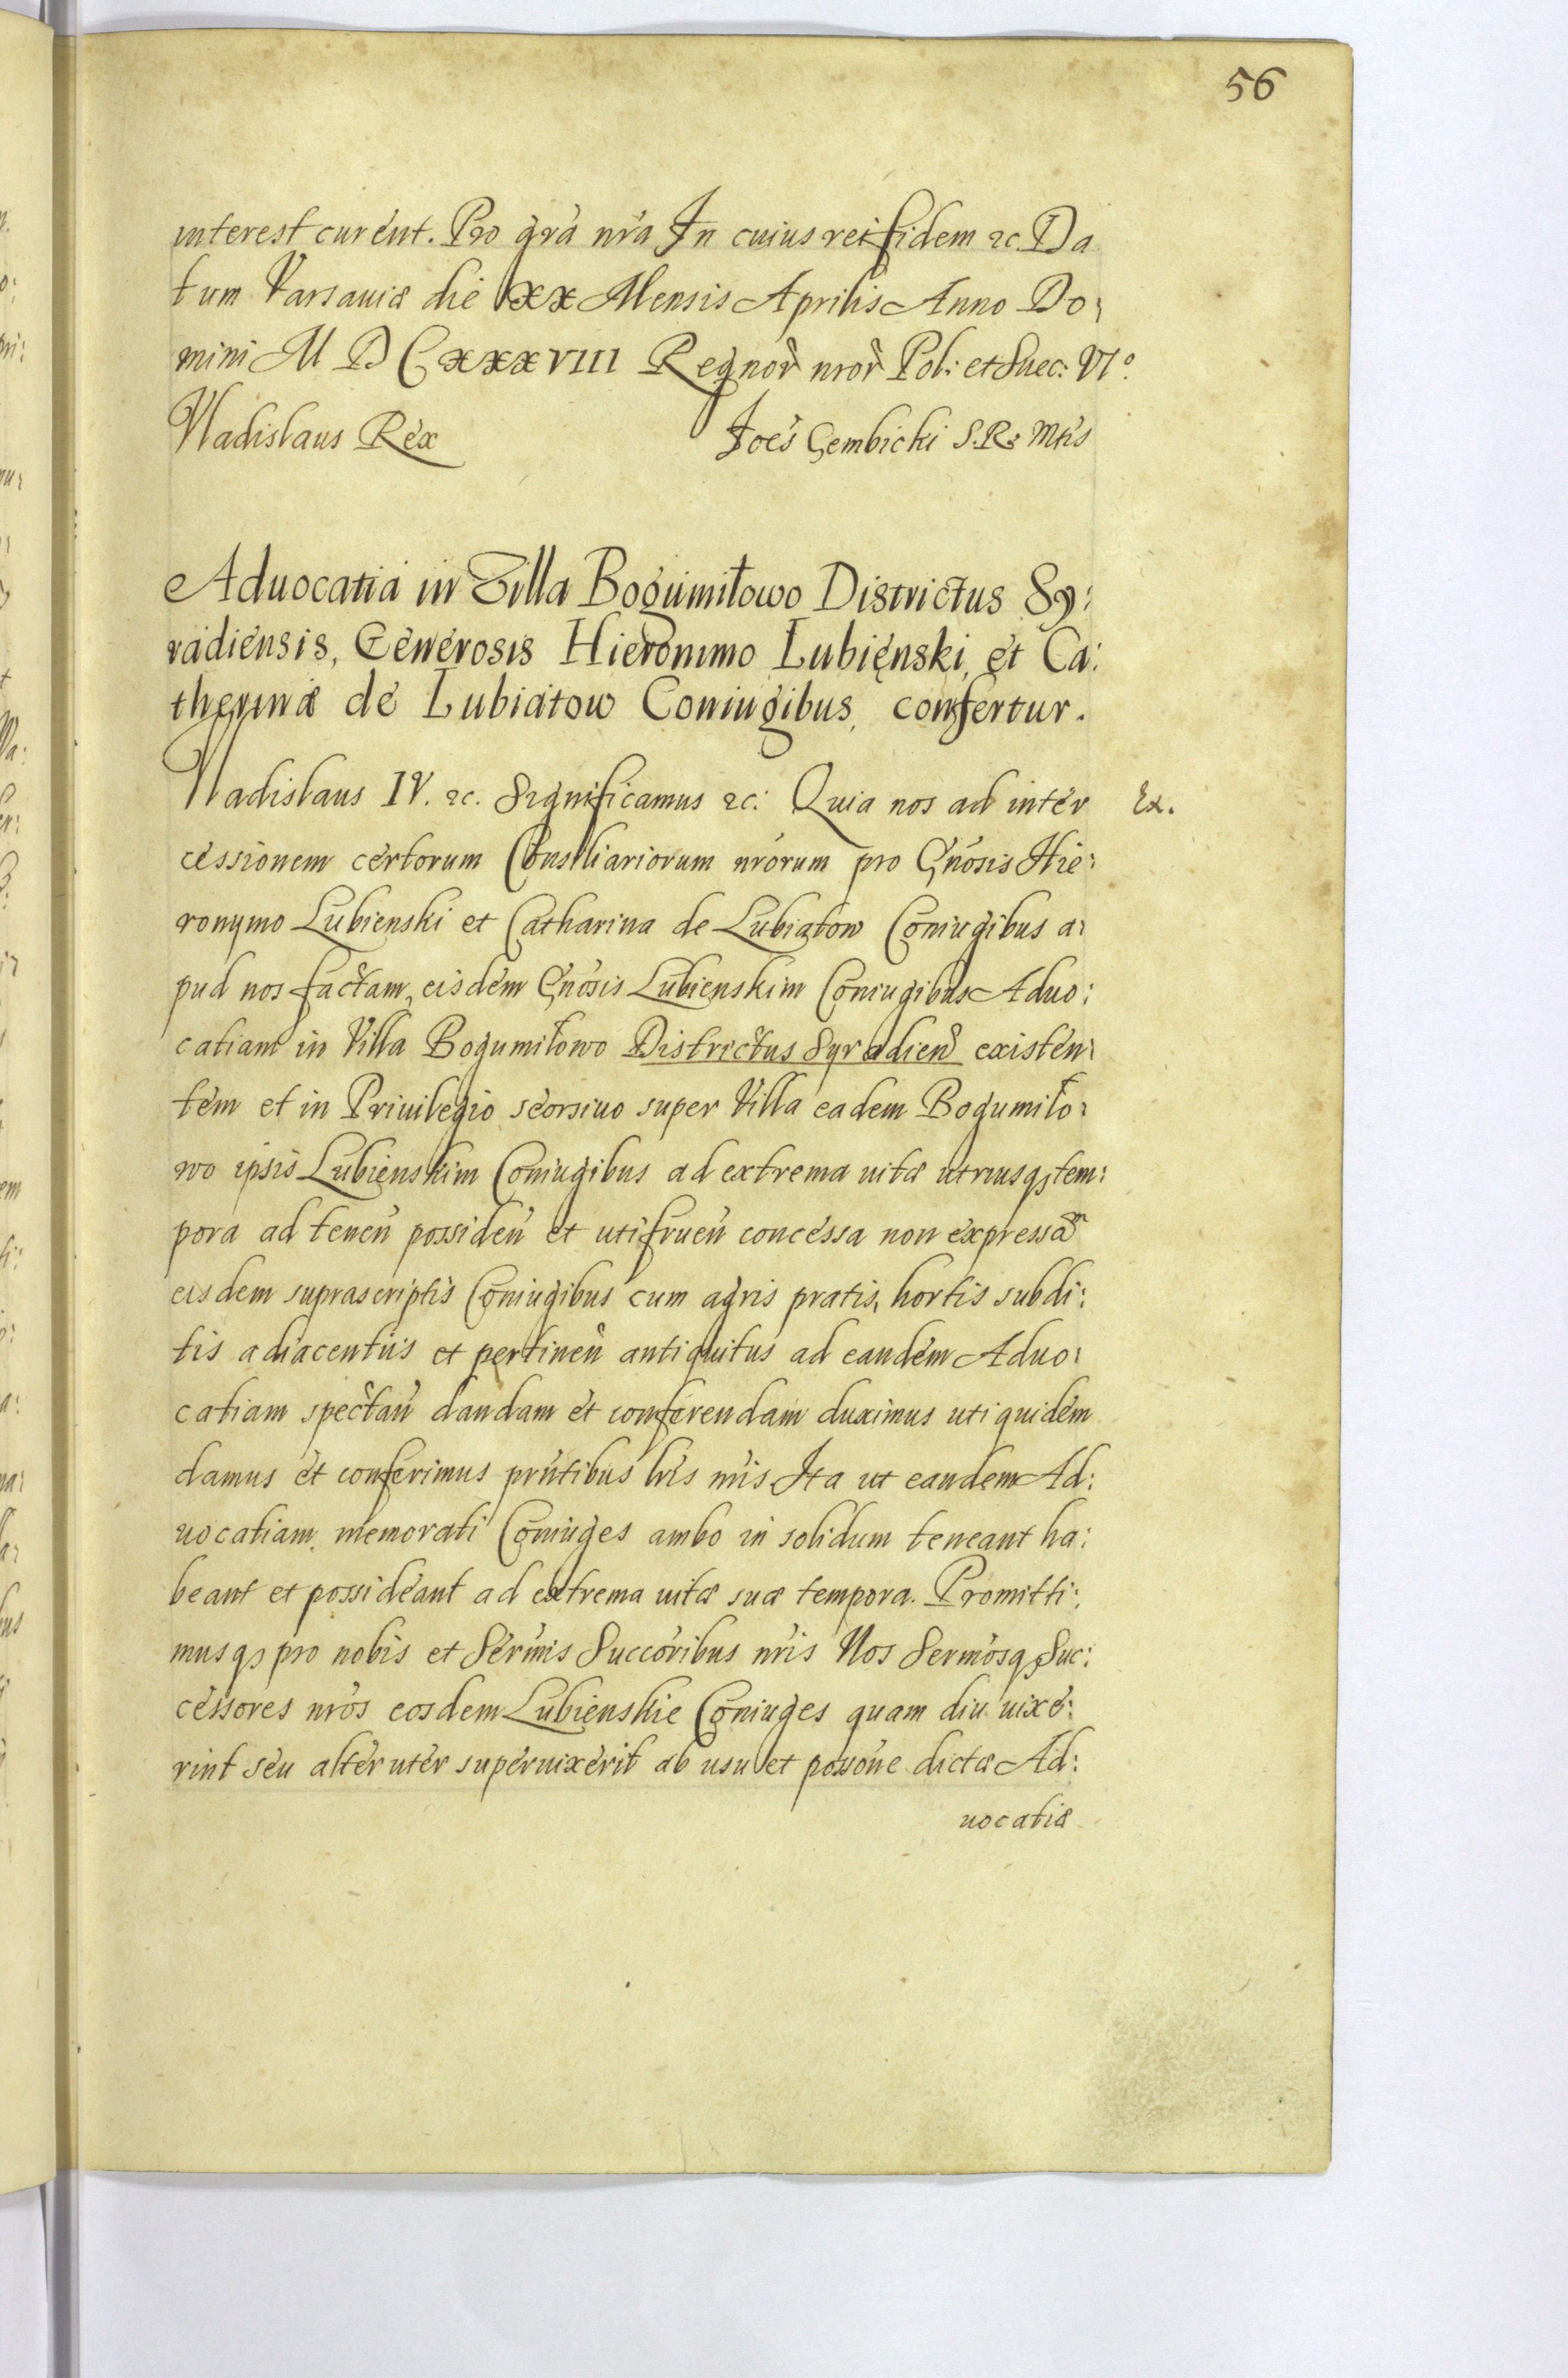 56
interest curent. Pro gra nra In cuius rei fidem &c. Da
tum Varsauiæ die XX Mensis Aprilis Anno Do:
mini M D C XXX VIII Regnor nror Pol: et Suec: VI°.
Vladislaus Rex Joes Gembicki S. R. Mtis
Aduocatia in Villa Bogumiłowo Districtus Sy:
radiensis, Generosis Hieronimo Lubięnski, et Ca:
therinæ de Lubiatow Coniugibus, confertur.
Vladislaus IV. &c. Significamus &c: Quia nos ad inter Ex.
cessionem certorum Consiliariorum nrorum pro Gnosis Hie:
ronymo Lubienski et Catharina de Lubiatow Coniugibus a:
pud nos factam, eisdem Gnosis Lubienskim Coniugibus Aduo:
catiam in Villa Bogumiłowo Districtus Syradien existen:
tem et in Priuilegio seorsiuo super Villa eadem Bogumiło:
wo ipsis Lubięnskim Coniugibus ad extrema uitæ utriusq3 tem:
pora ad tenen possiden et utifruen concessa non expressam
eisdem suprascriptis Coniugibus cum agris pratis, hortis subdi:
tis adiacentiis et pertinen antiquitus ad eandem Aduo:
catiam spectan dandam et conferendam duximus uti quidem
damus et conferimus prntibus lris nris Ita ut eandem Ad:
uocatiam memorati Coniuges ambo in solidum teneant ha:
beant et possideant ad extrema uitæ suæ tempora. Promitti:
musq3 pro nobis et Sermis Succoribus nris Nos Sermosq3 Suc:
cessores nros eosdem Lubięnskie Coniuges quam diu uixe:
rint seu alteruter superuixerit ab usu et possone dictæ Ad:
uocatiæ